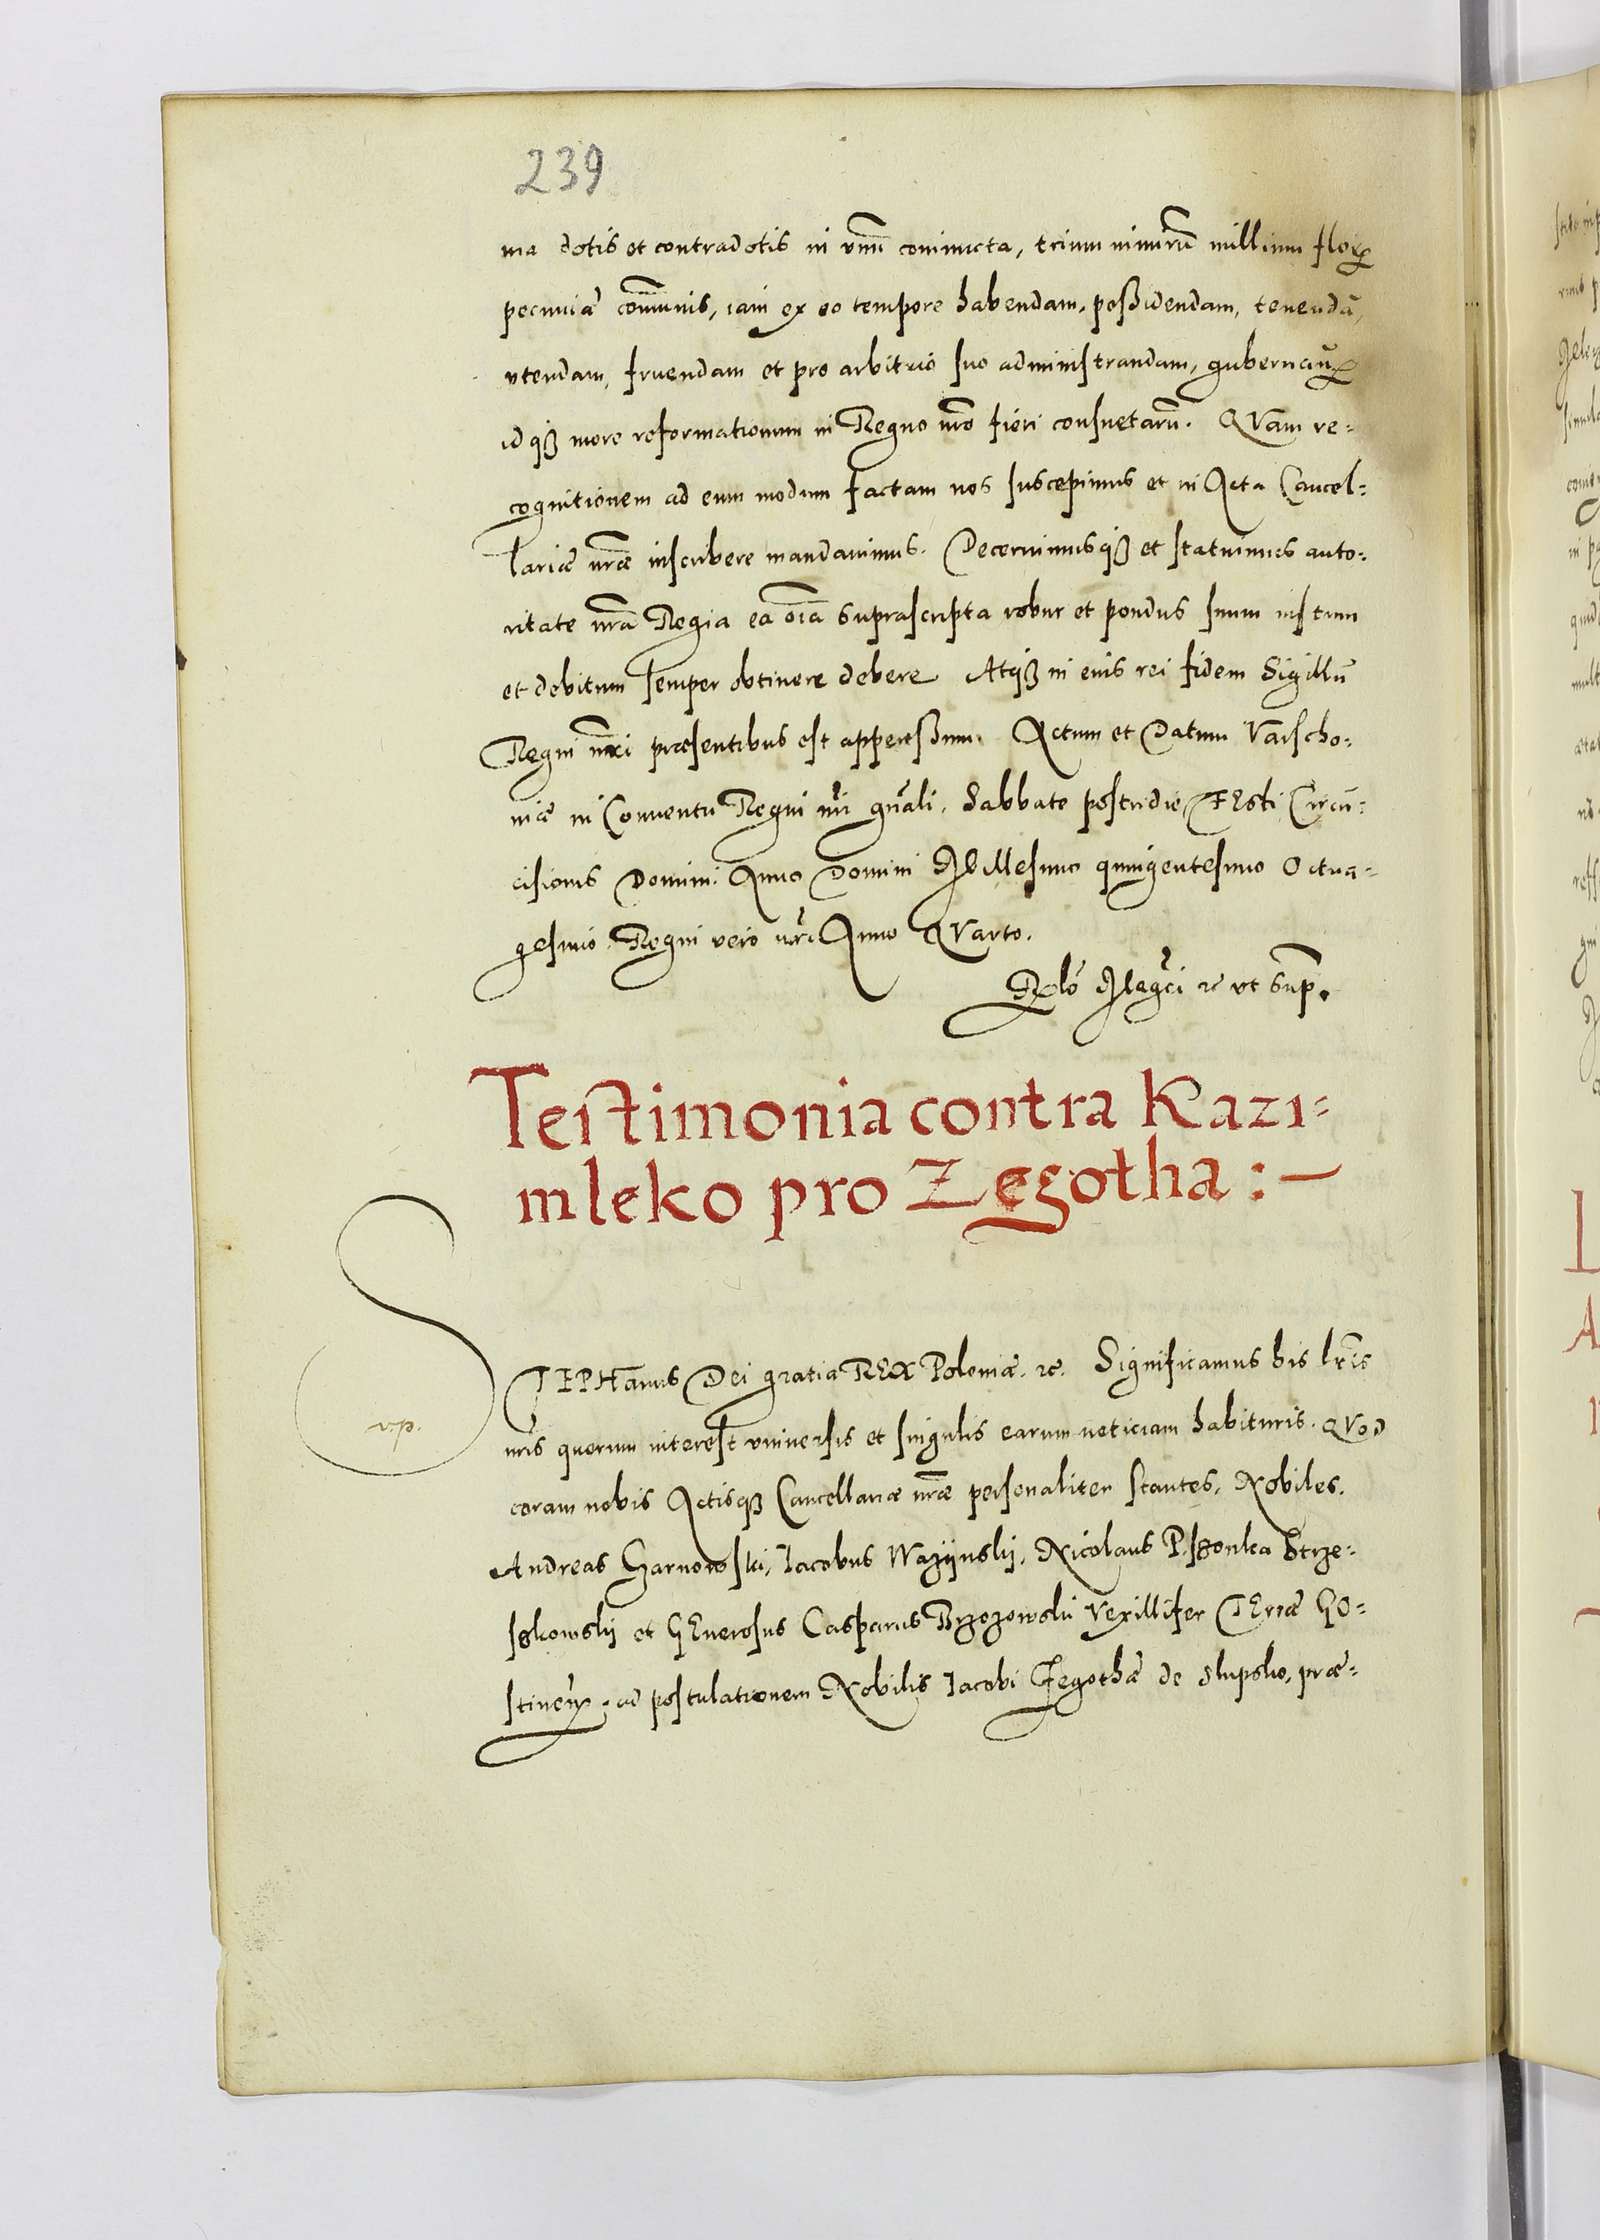 239
ma dotis et contradotis in vnū coniuncta, trium nimirū millium floꝝ
pecuniæ cōmunis, iam ex eo tempore habendam, possidendam, tenendā,
vtendam, fruendam et pro arbitrio suo administrandam,
idqꝫ more reformationum in Regno nr̄o fieri consuetarū. QVam re=
cognitionem ad eum modum factam nos suscepimus et in Acta Cancel=
lariæ nr̄æ inscribere mandauimus. Decernimusqꝫ et statuimus auto=
ritate nr̄a Regia ea oīa suprascripta robur et pondus suum iustum
et debitum semper obtinere debere Atqꝫ in euis rei fidem Sigillū
Regni nr̄i præsentibus est appensum. Actum et Datum Varscho=
uiæ in Conuentu Regni nr̄i gn̄ali. Sabbato postridie FEsti Circū=
cisionis Domini. Anno Domini Millesimo quingentesimo Octua=
gesimo. Regni vero nr̄i Anno QVarto.
Rel̄o Maḡci ꝛc vt sup̄.
Testimonia contra Kazi=
mleko pro Zegotha :—
STEPHanus Dei gratia REX Poloniæ. ꝛc. Significamus his lr̄is
v.p.
nr̄is quorum interest vniuersis et singulis earum noticiam habituris. QVod
coram nobis Actisqꝫ Cancellariæ nr̄æ personaliter stantes, Nobiles.
Andreas Czarnowski, Iacobus Wazÿnskÿ, Nicolaus Pszonka Strze=
szkowskÿ et GEnerosus Casparus Brzozowski Vexillifer TErræ GO=
stineñ. ad postulationem Nobilis Iacobi Zegothæ de Slupsko, præ=